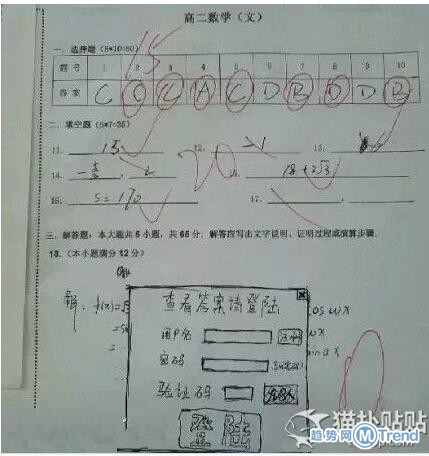 高二数学（文）
一、选择题（5*10=50） 15
题号 1 2 3 4 5 6 7 8 9 10
答案 C C C A C D B D D B
二、填空题（5*7=35）
11. 15 12. >1 13.
14. 20 18+2√3
16. S=170 17.
三、解答题：本大题共5小题，共65分，解答应写出文字说明、证明过程或演算步骤。
18.（本小题满分12分）
查看答案请登陆
解：f(x)= cos wx
用户名 注册
密码
验证码
登陆
猫扑贴贴
趋势网 MTrend